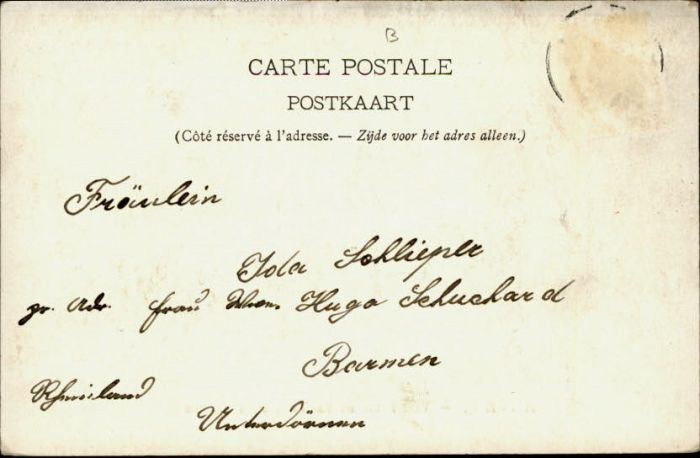 B
CARTE POSTALE
POSTKAART
(Côté réservé à l'adresse. — Zijde voor het adres alleen.)
Fräulein
Ida Schlieper
pr. Adr. Frau Hugo Schuchard
Barmen
Rheinland
Unterdörnen